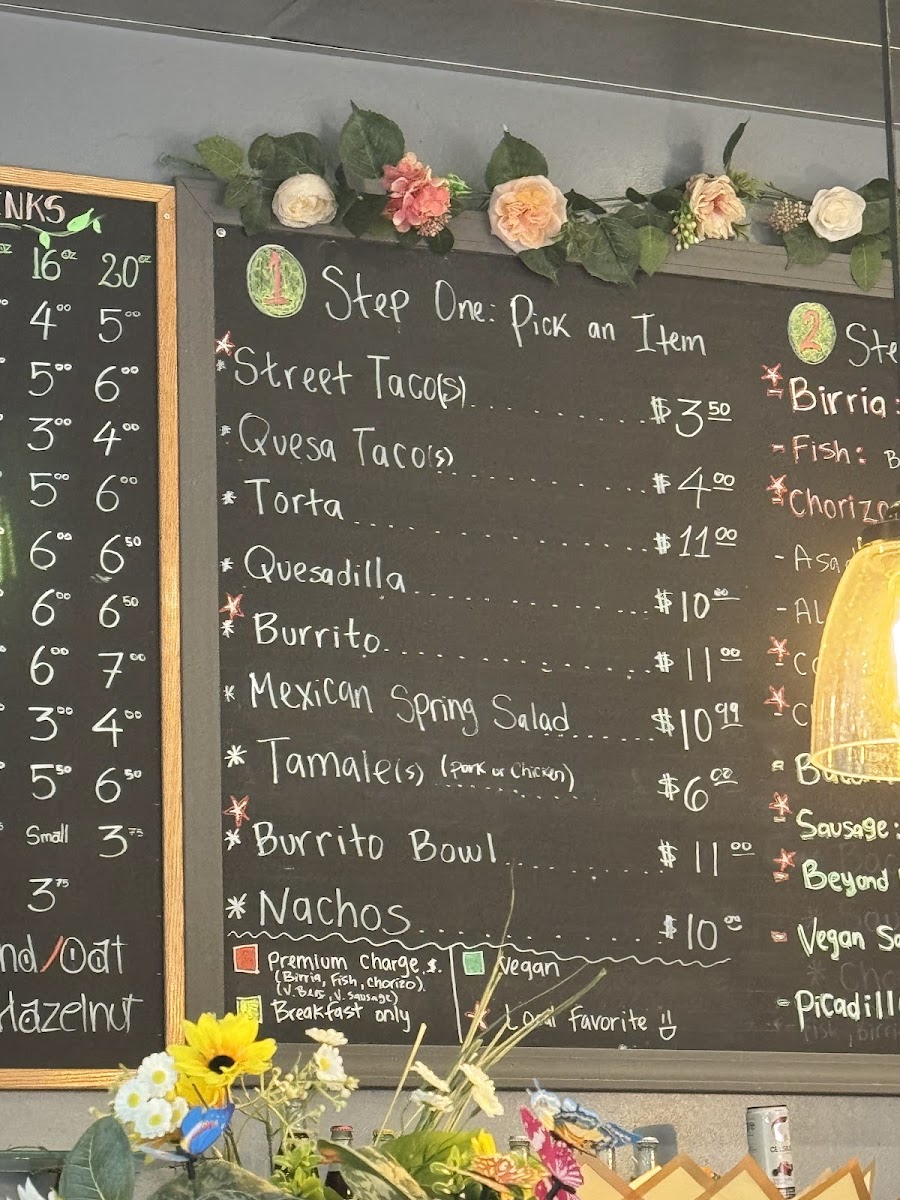 NKS
16oz 20oz
4.00 5.00
5.00 6.00
3.00 4.00
5.00 6.00
6.00 6.50
6.00 6.50
6.00 7.00
3.00 4.00
5.50 6.50
Small 3.75
3.75
nd/Oat
Hazelnut
1 Step One: Pick an Item
* Street Taco(s) $3.50
* Quesa Taco(s) $4.00
* Torta $11.00
* Quesadilla $10.00
* Burrito $11.00
* Mexican Spring Salad $10.99
* Tamale(s) (Pork or Chicken) $6.00
* Burrito Bowl $11.00
* Nachos $10.00
Premium Charge $.
(Birria, Fish, Chorizo).
Breakfast only
Vegan
Local Favorite
2 Ste
Birria:
- Fish: B
Chorizo
- Asa
- AL
- C
- C
Sausage:
Beyond
- Vegan Sa
- Picadill
CELSIUS